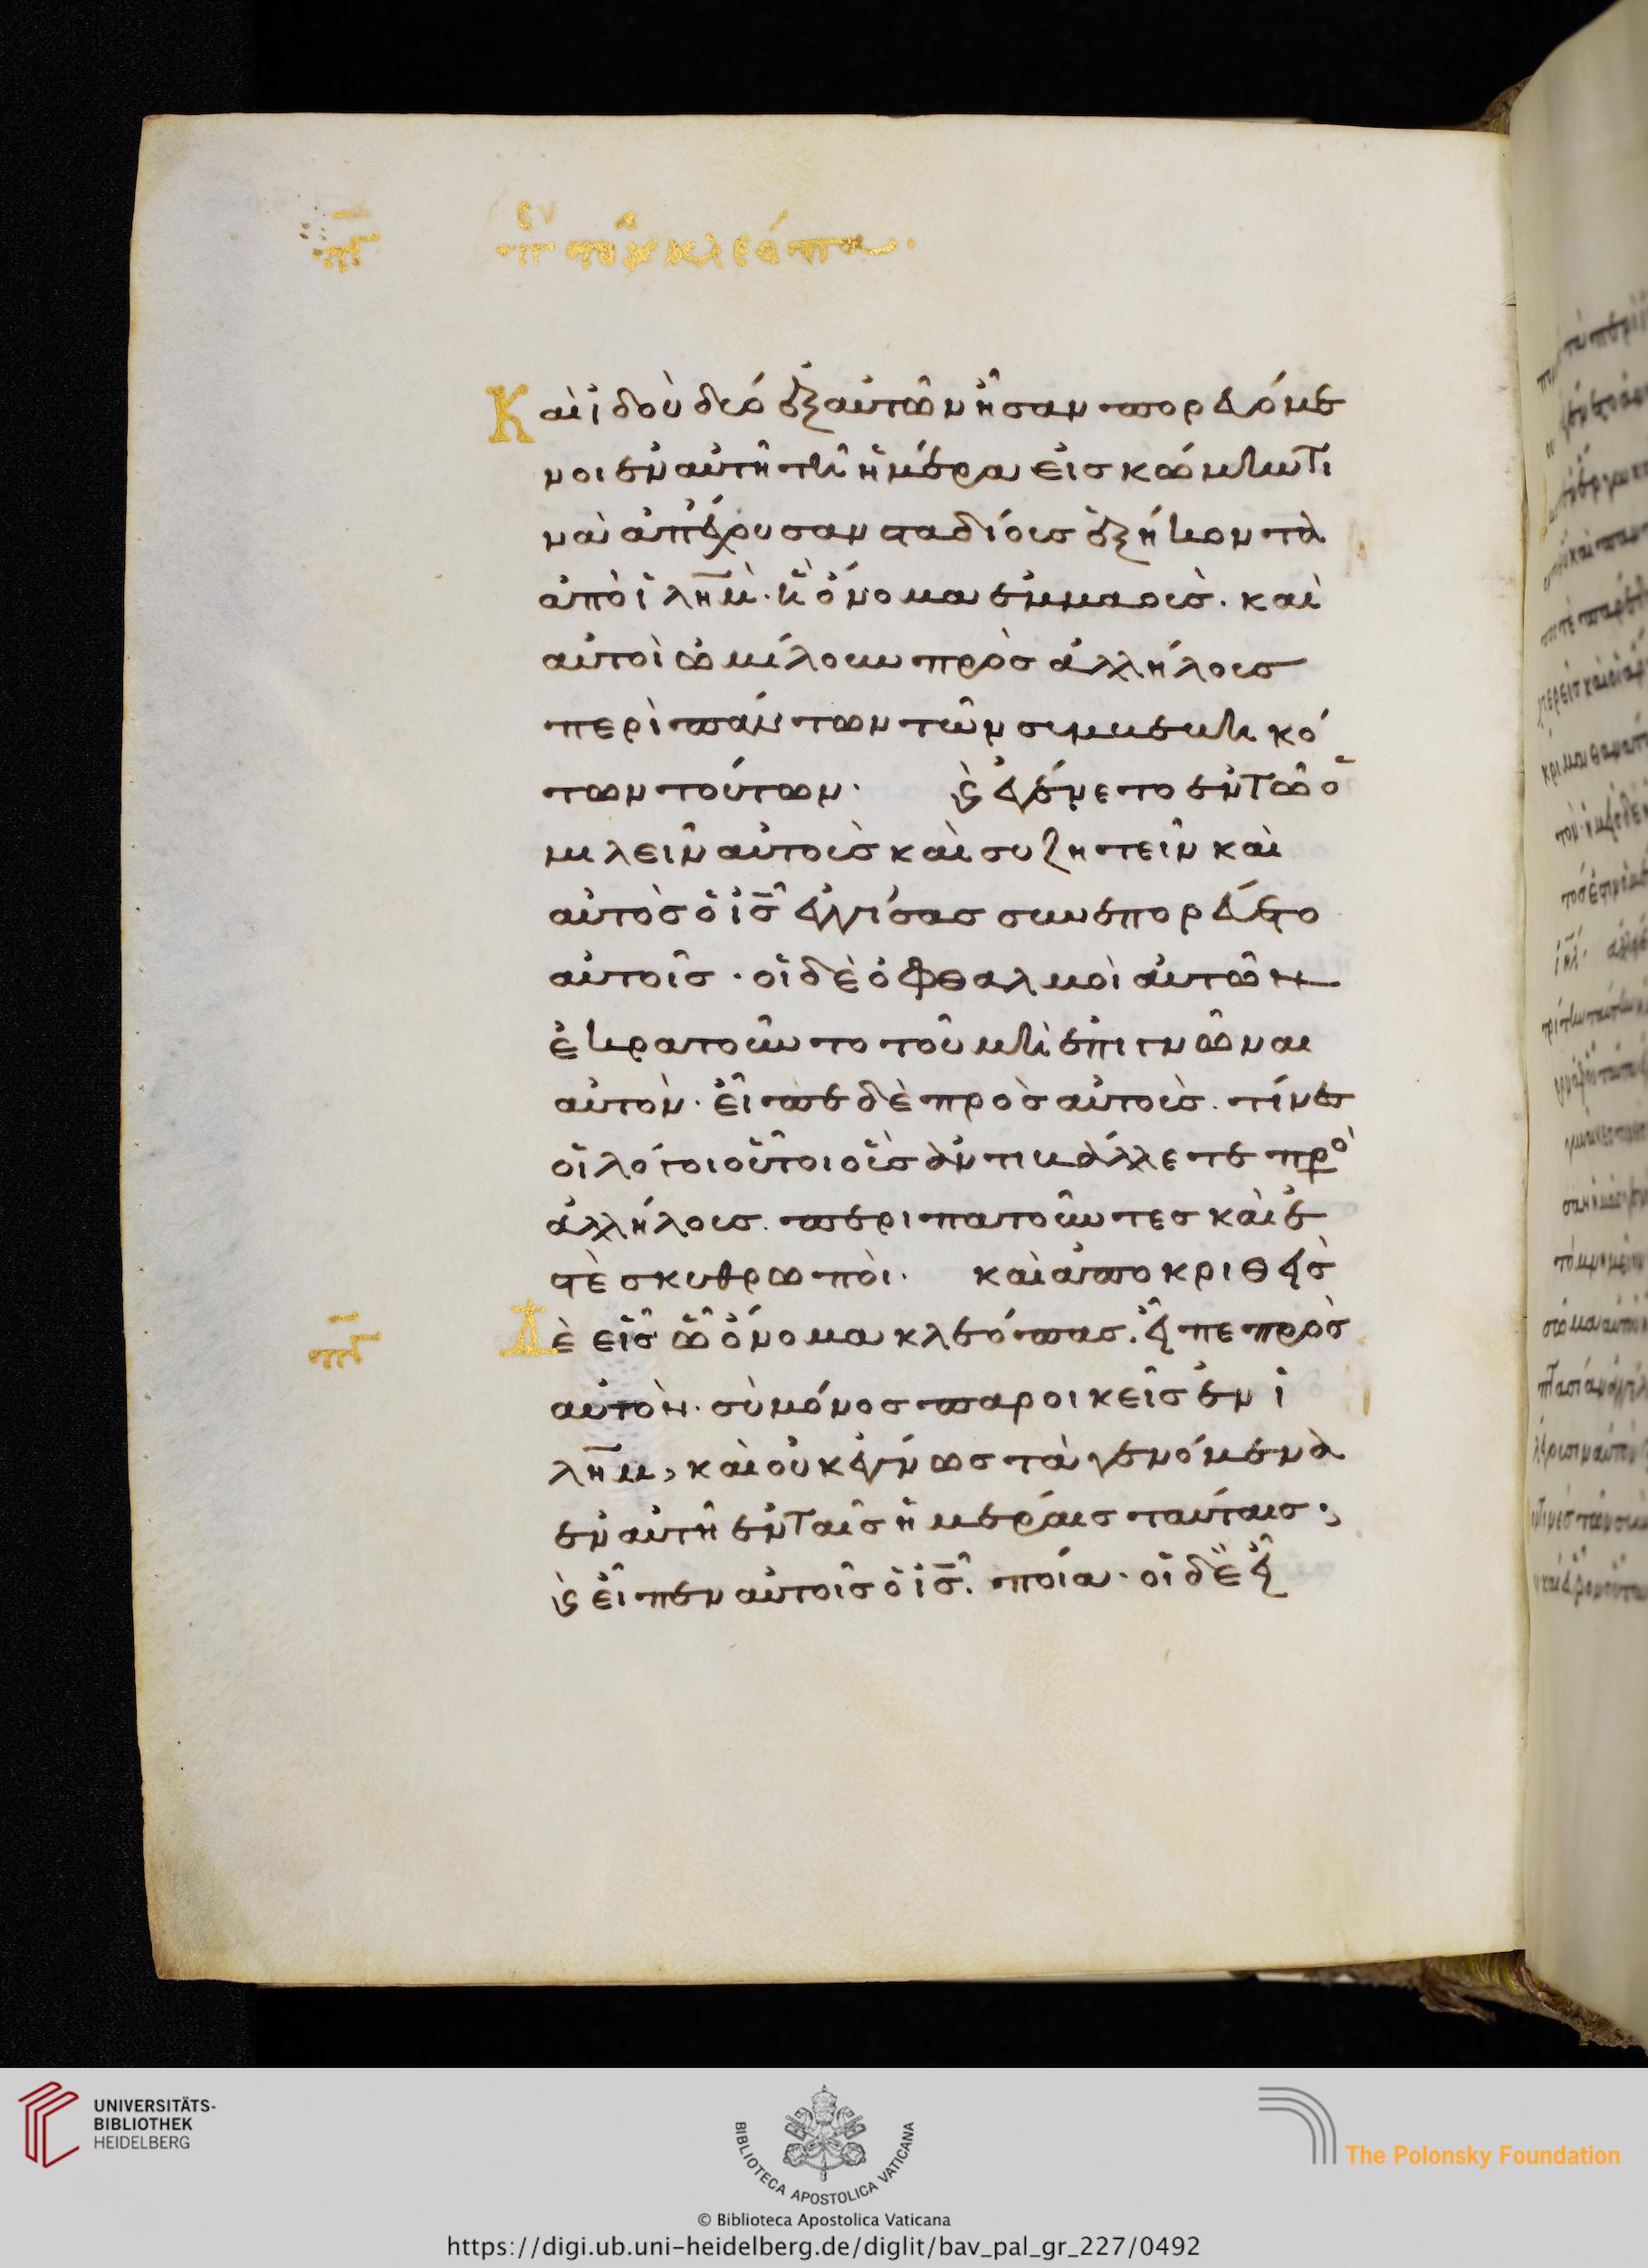 περὶ τοῦ κλεόπα.
Καὶ ἰδοὺ δύο ἐξ αὐτῶν ἦσαν πορευόμε
νοι ἐν αὐτῇ τῇ ἡμέρα εἰς κώμην τι
νὰ ἀπέχουσαν σταδίους ἐξήκοντα
ἀπὸ ἰλημ̅. ᾗ ὄνομα ἐμμαούς. καὶ
αὐτοὶ ὡμίλουν πρὸς ἀλλήλους
περὶ πάντων τῶν συμβεβηκό
των τούτων. ϗ ἐγένετο ἐν τῶ ὁ
μιλεῖν αὐτοὺς καὶ συζητεῖν καὶ
αὐτὸς ὁ ἰς̅ ἐγγίσας συνεπορεύετο
αὐτοῖς. οἱ δὲ ὀφθαλμοὶ αὐτῶν
ἐκρατοῦντο τοῦ μὴ ἐπιγνῶναι
αὐτόν. εἶπε δὲ πρὸς αὐτούς. τίνες
οἱ λόγοι οὗτοι οὓς ἀντιβάλλετε πρὸ
ἀλλήλους. περιπατοῦντες καὶ ἐ
στὲ σκυθρωποί. καὶ ἀποκριθεὶς
Δὲ εἷς ὧ ὄνομα κλεόπας. εἶπε πρὸς
αὐτόν. σὺ μόνος παροικεῖς ἐν ἱ
λημ̅, καὶ οὐκ ἔγνως τὰ γενόμενα
ἐν αὐτῇ ἐν ταῖς ἡμέραις ταύταις;
ϗ εἶπεν αὐτοῖς ὁ ἰς̅. ποία. οἱ δὲ εἶ
UNIVERSITÄTS-
BIBLIOTHEK
HEIDELBERG
BIBLIOTECA APOSTOLICA VATICANA
The Polonsky Foundation
© Biblioteca Apostolica Vaticana
https://digi.ub.uni-heidelberg.de/diglit/bav_pal_gr_227/0492